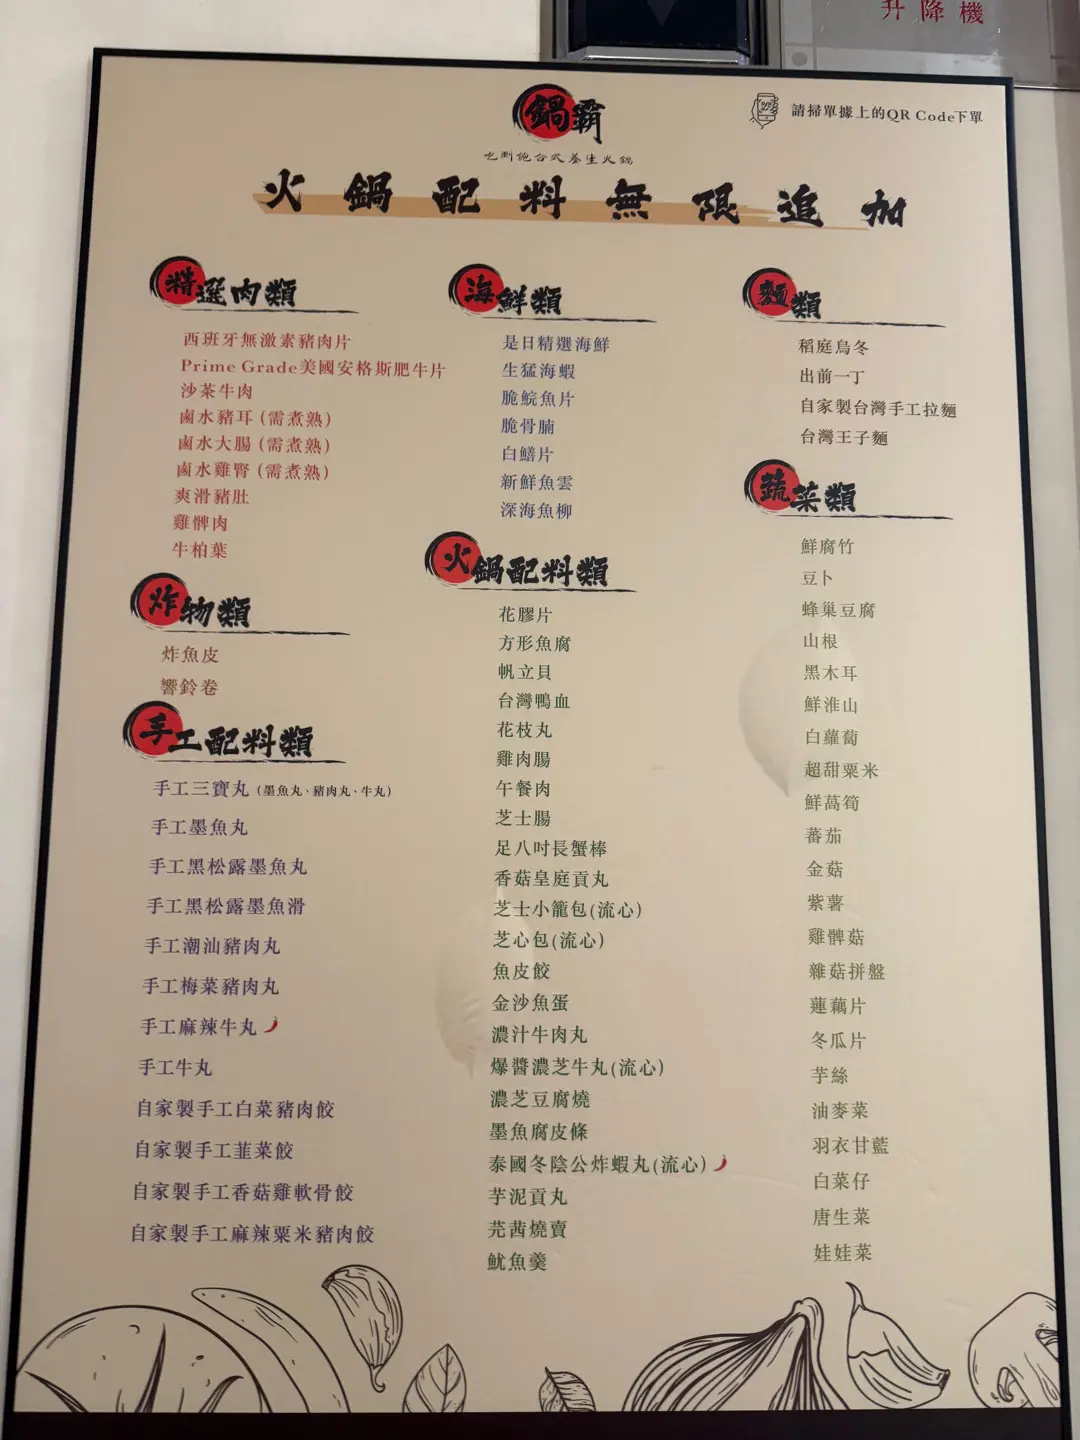 升降機
鍋霸
吃唰飽台式養生火鍋
請掃單據上的QR Code下單
火鍋配料無限追加
精選肉類
西班牙無激素豬肉片
Prime Grade美國安格斯肥牛片
沙茶牛肉
鹵水豬耳 (需煮熟)
鹵水大腸 (需煮熟)
鹵水雞腎 (需煮熟)
爽滑豬肚
雞髀肉
牛柏葉
炸物類
炸魚皮
響鈴卷
手工配料類
手工三寶丸 (墨魚丸、豬肉丸、牛丸)
手工墨魚丸
手工黑松露墨魚丸
手工黑松露墨魚滑
手工潮汕豬肉丸
手工梅菜豬肉丸
手工麻辣牛丸
手工牛丸
自家製手工白菜豬肉餃
自家製手工韮菜餃
自家製手工香菇雞軟骨餃
自家製手工麻辣粟米豬肉餃
海鮮類
是日精選海鮮
生猛海蝦
脆鯇魚片
脆骨腩
白鱔片
新鮮魚雲
深海魚柳
火鍋配料類
花膠片
方形魚腐
帆立貝
台灣鴨血
花枝丸
雞肉腸
午餐肉
芝士腸
足八吋長蟹棒
香菇皇庭貢丸
芝士小籠包(流心)
芝心包(流心)
魚皮餃
金沙魚蛋
濃汁牛肉丸
爆醬濃芝牛丸(流心)
濃芝豆腐燒
墨魚腐皮條
泰國冬陰公炸蝦丸(流心)
芋泥貢丸
芫茜燒賣
魷魚羹
麵類
稻庭烏冬
出前一丁
自家製台灣手工拉麵
台灣王子麵
蔬菜類
鮮腐竹
豆卜
蜂巢豆腐
山根
黑木耳
鮮淮山
白蘿蔔
超甜粟米
鮮萵筍
蕃茄
金菇
紫薯
雞髀菇
雜菇拼盤
蓮藕片
冬瓜片
芋絲
油麥菜
羽衣甘藍
白菜仔
唐生菜
娃娃菜